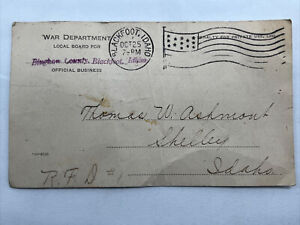 WAR DEPARTMENT
LOCAL BOARD FOR
Bingham County, Blackfoot, Idaho
OFFICIAL BUSINESS
BLACKFOOT, IDAHO
OCT 25
7-PM
PENALTY FOR PRIVATE USE, $300
Thomas W. Ashmont
Shelley
Idaho
R. F. D